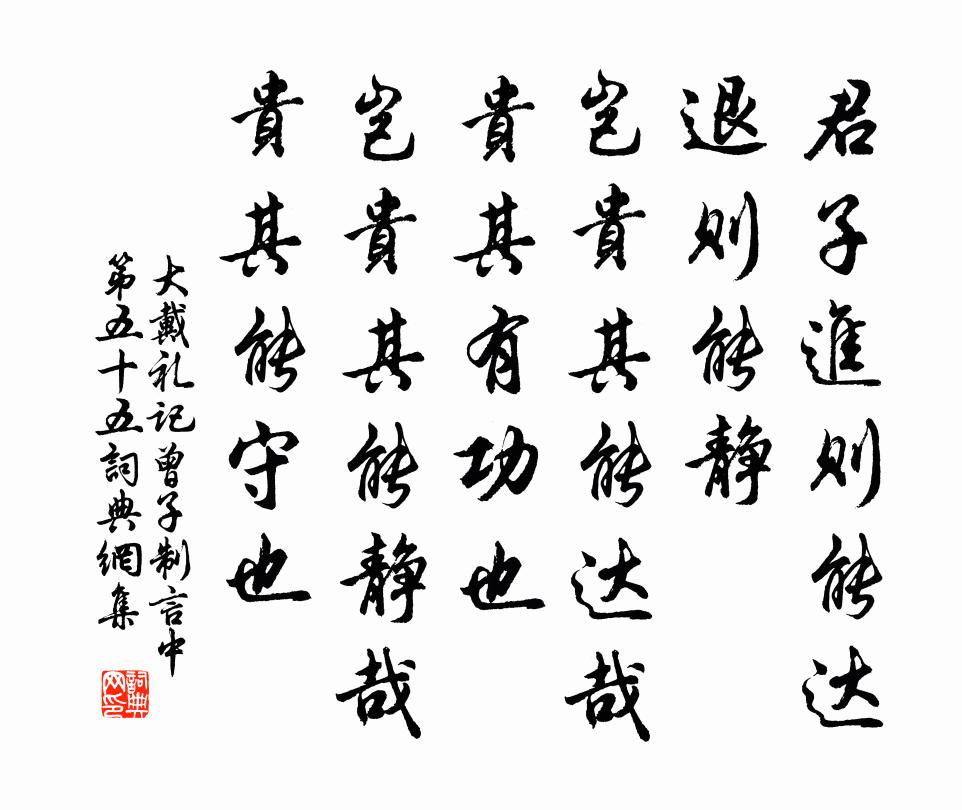 君子進則能达
退則能静
岂貴其能达哉
貴其有功也
岂貴其能静哉
貴其能守也
大戴礼記曾子制言中
第五十五詞典網集
詞典
网印